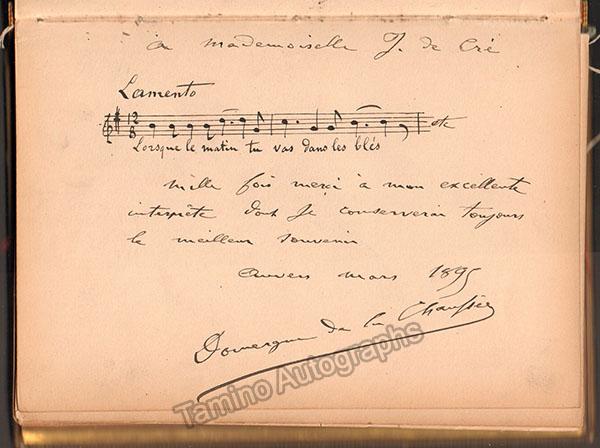 à mademoiselle J. de Cré
Lamento
Lorsque le matin tu vas dans les blés
etc
mille fois merci à mon excellente
interprète dont je conserverai toujours
le meilleur souvenir
Anvers mars 1895
Domergue de la Chaussée
Tamino Autographs